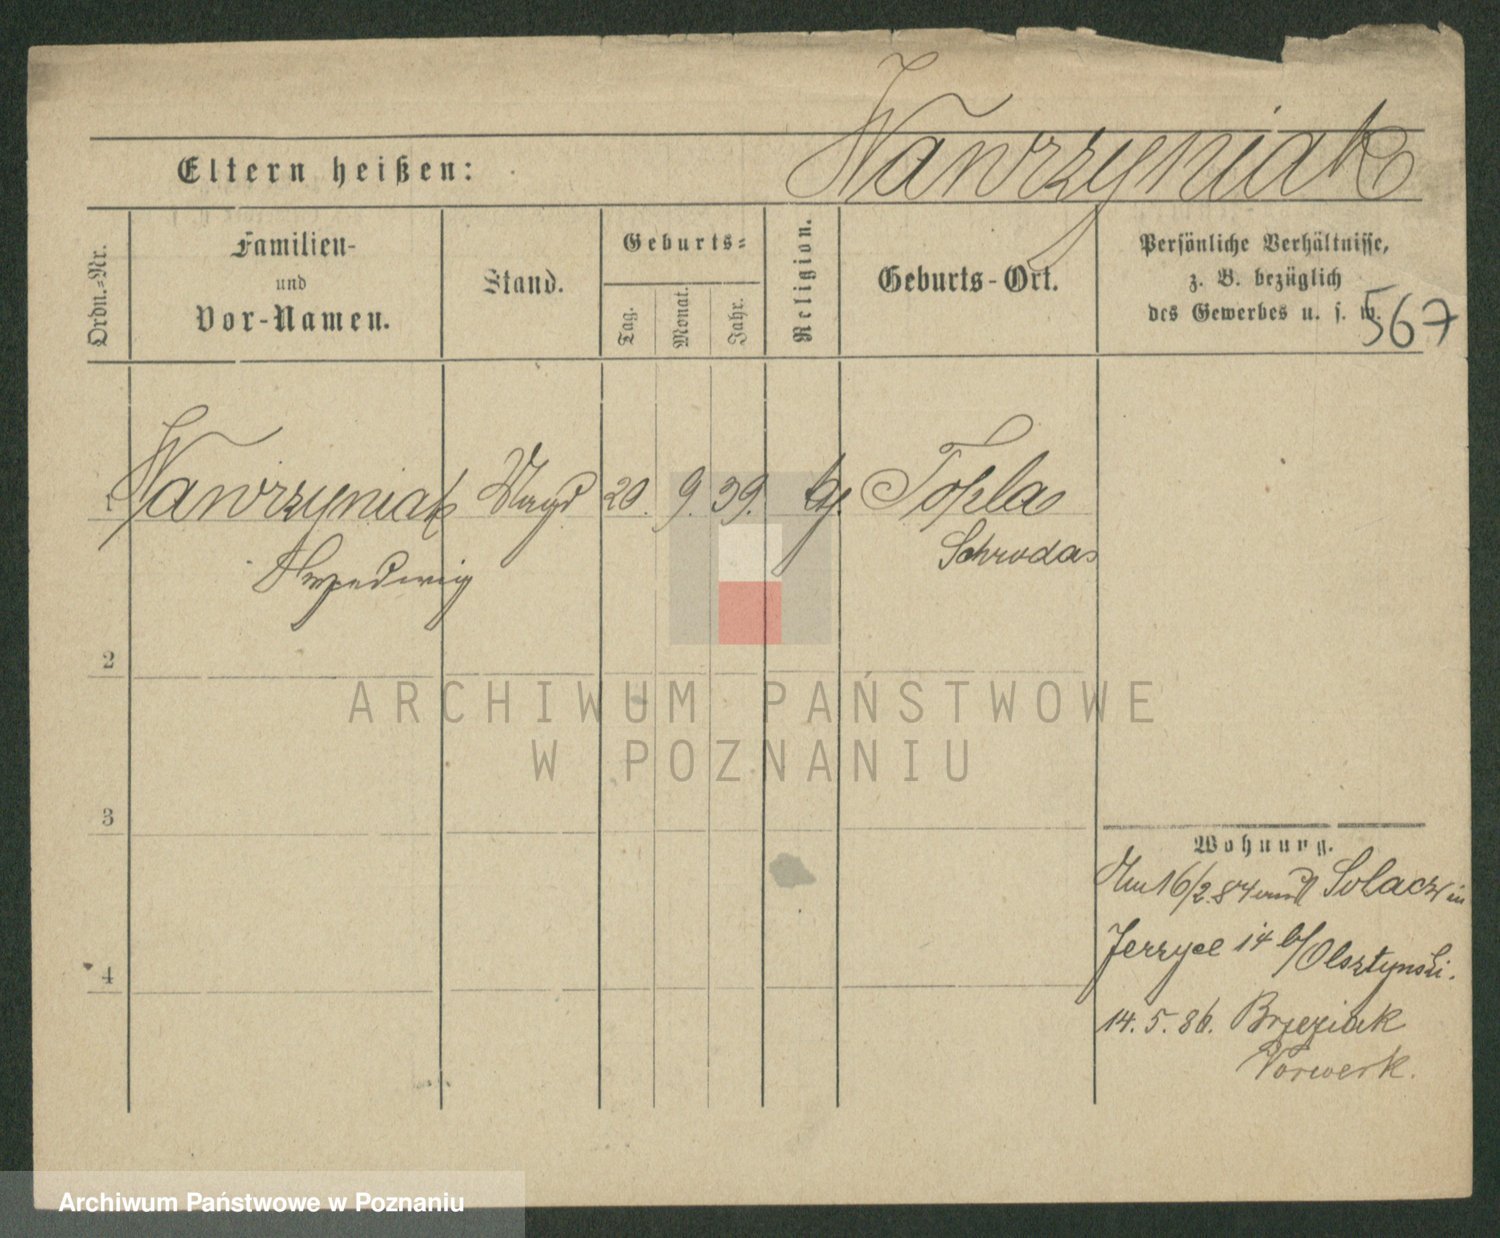 Wawrzyniak
Eltern heißen:
Ordn.-Nr.
Familien-
und
Vor-Namen.
Stand.
Geburts-
Tag.
Monat.
Jahr.
Religion.
Geburts-Ort.
Persönliche Verhältnisse,
z. B. bezüglich
des Gewerbes u. s. w.
567
1 Wawrzyniak Magd 20. 9. 39. Topla
Hedwig Schroda
2
3
4
Wohnung.
16/2 84 Solacz in
Jerzyce 14 b/ Olsztynski.
14. 5. 86. Brzeziak
Vorwerk.
ARCHIWUM PAŃSTWOWE
W POZNANIU
Archiwum Państwowe w Poznaniu